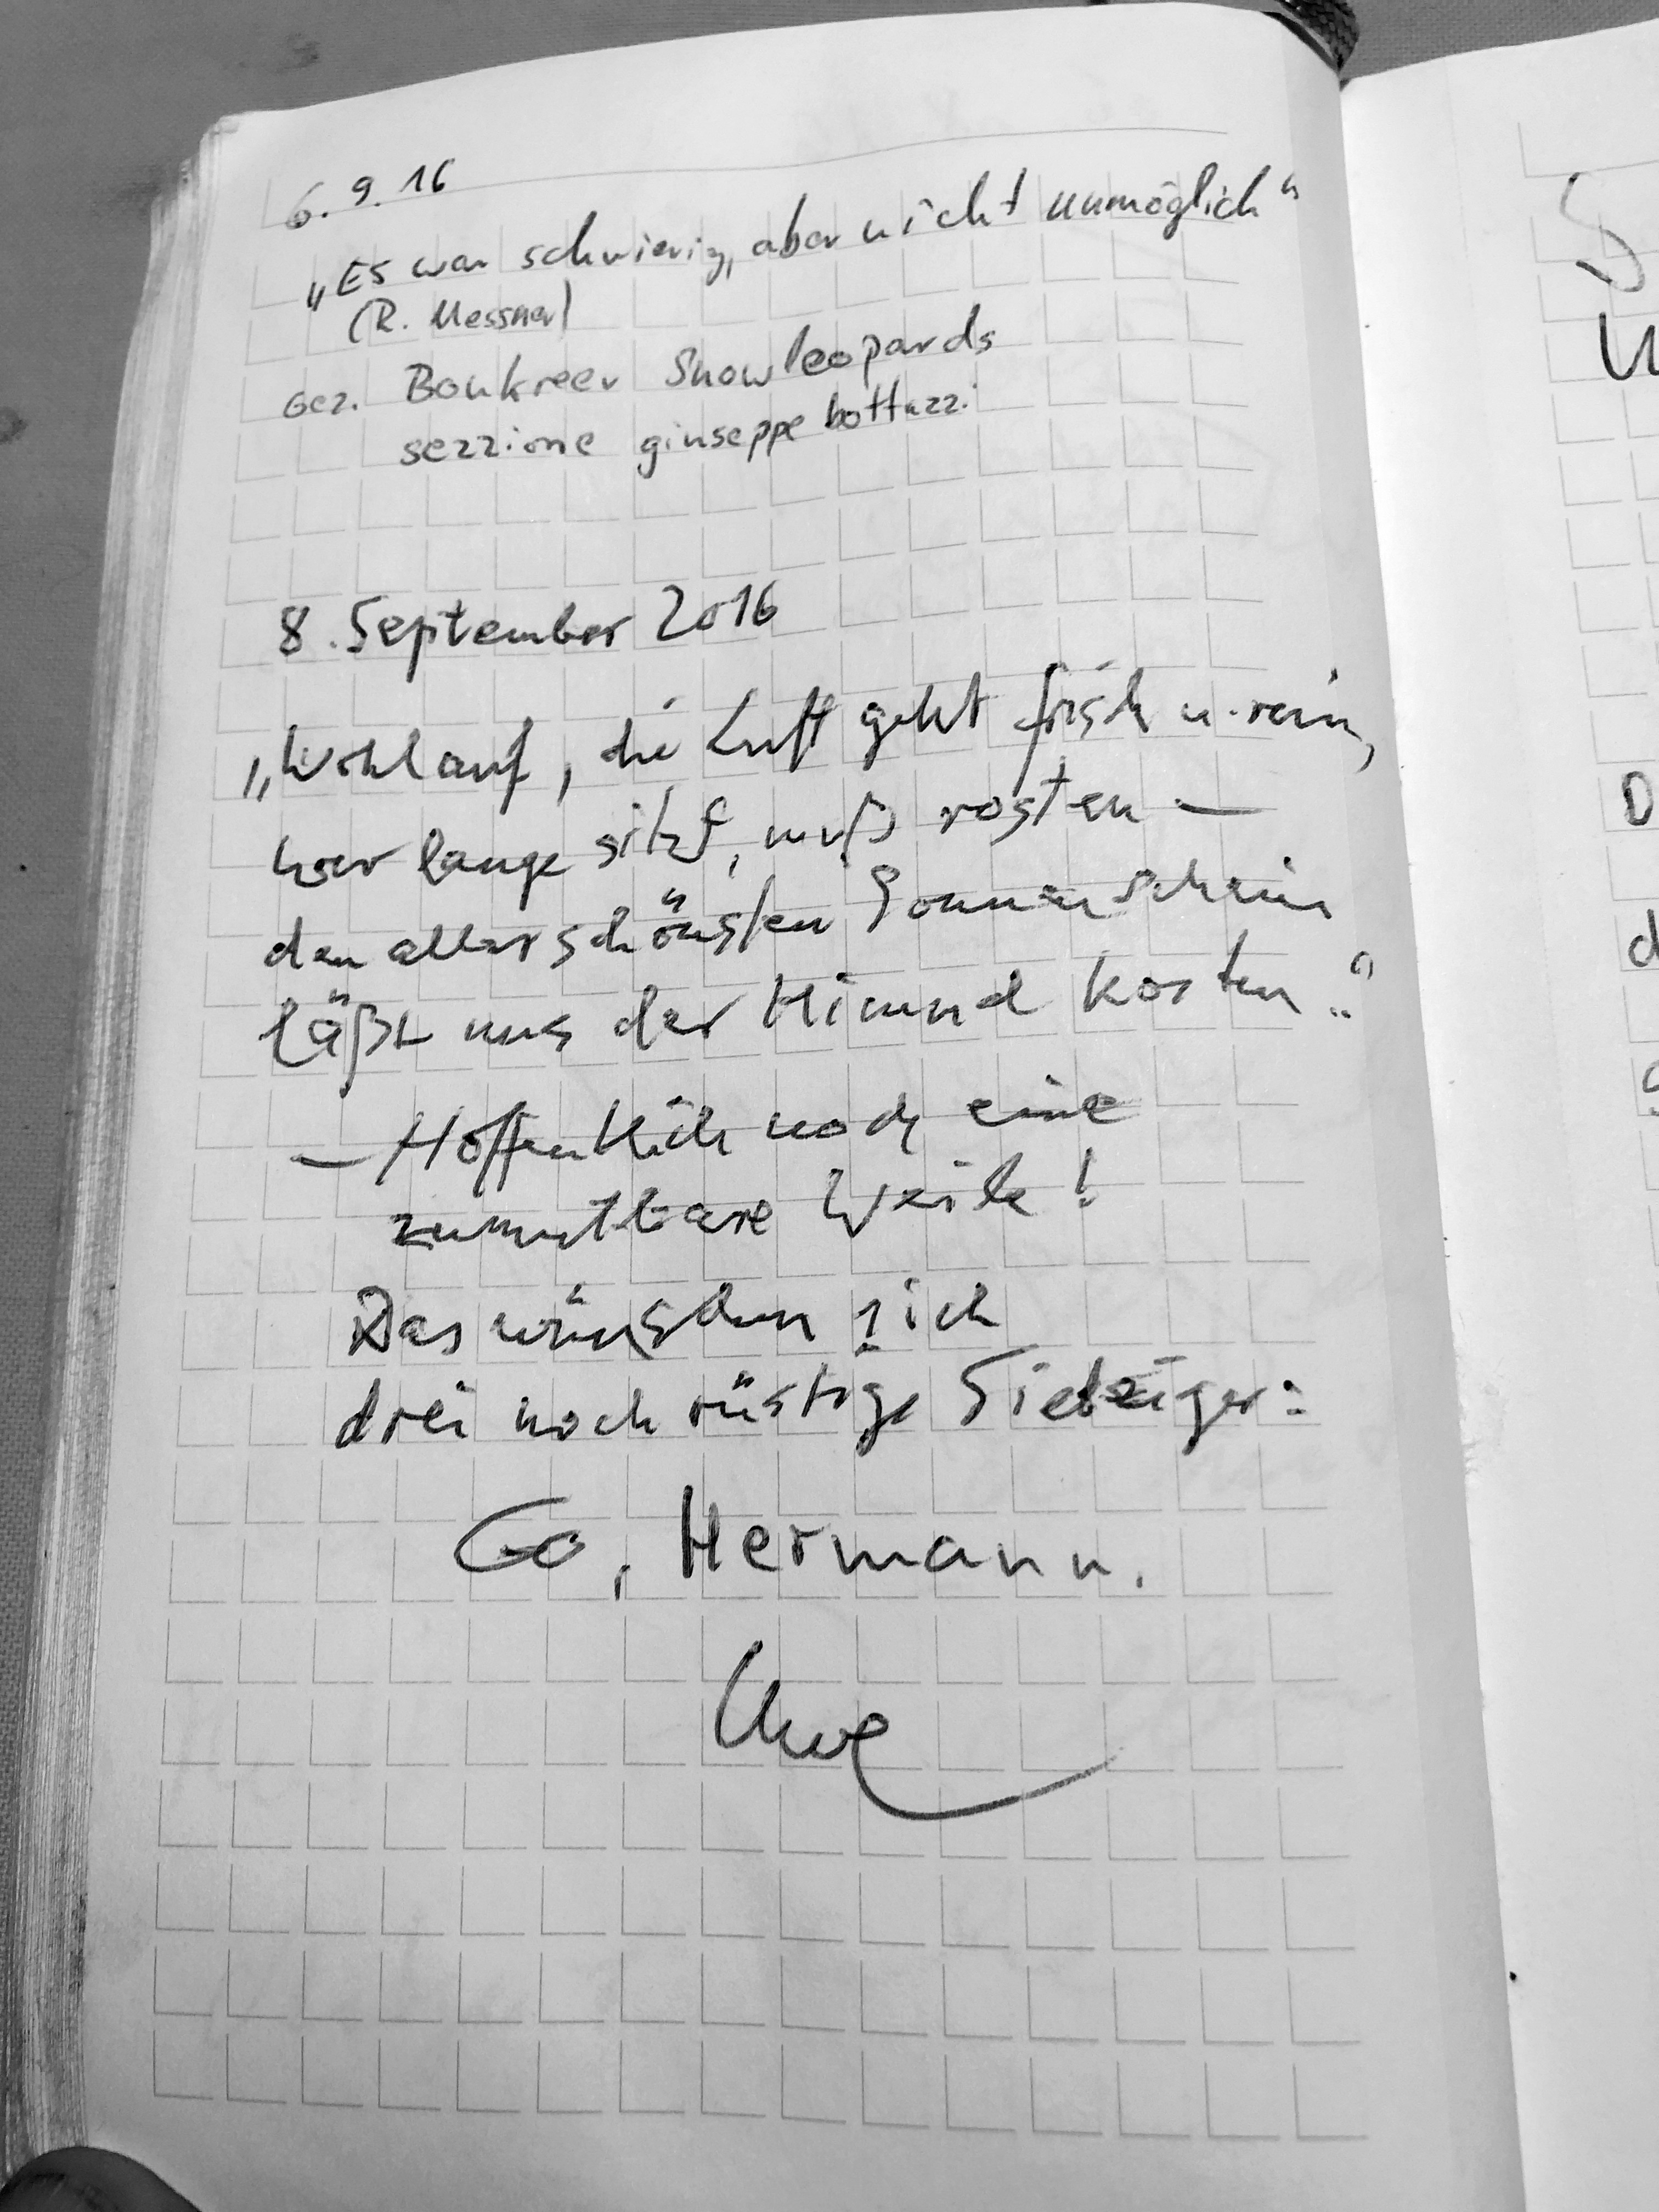 6. 9. 16
„Es war schwierig, aber nicht unmöglich“
(R. Messner)
Gez. Bonkreev Snowleopards
sezzione giuseppe bottazzi
8. September 2016
„Wohlauf, die Luft geht frisch u. rein,
wer lange sitzt, muß rosten —
den allerschönsten Sonnenschein
läßt uns der Himmel kosten..“
— Hoffentlich noch eine
zumutbare Weile!
Das wünschen sich
drei noch rüstige Siebziger:
Go, Hermann,
Uwe